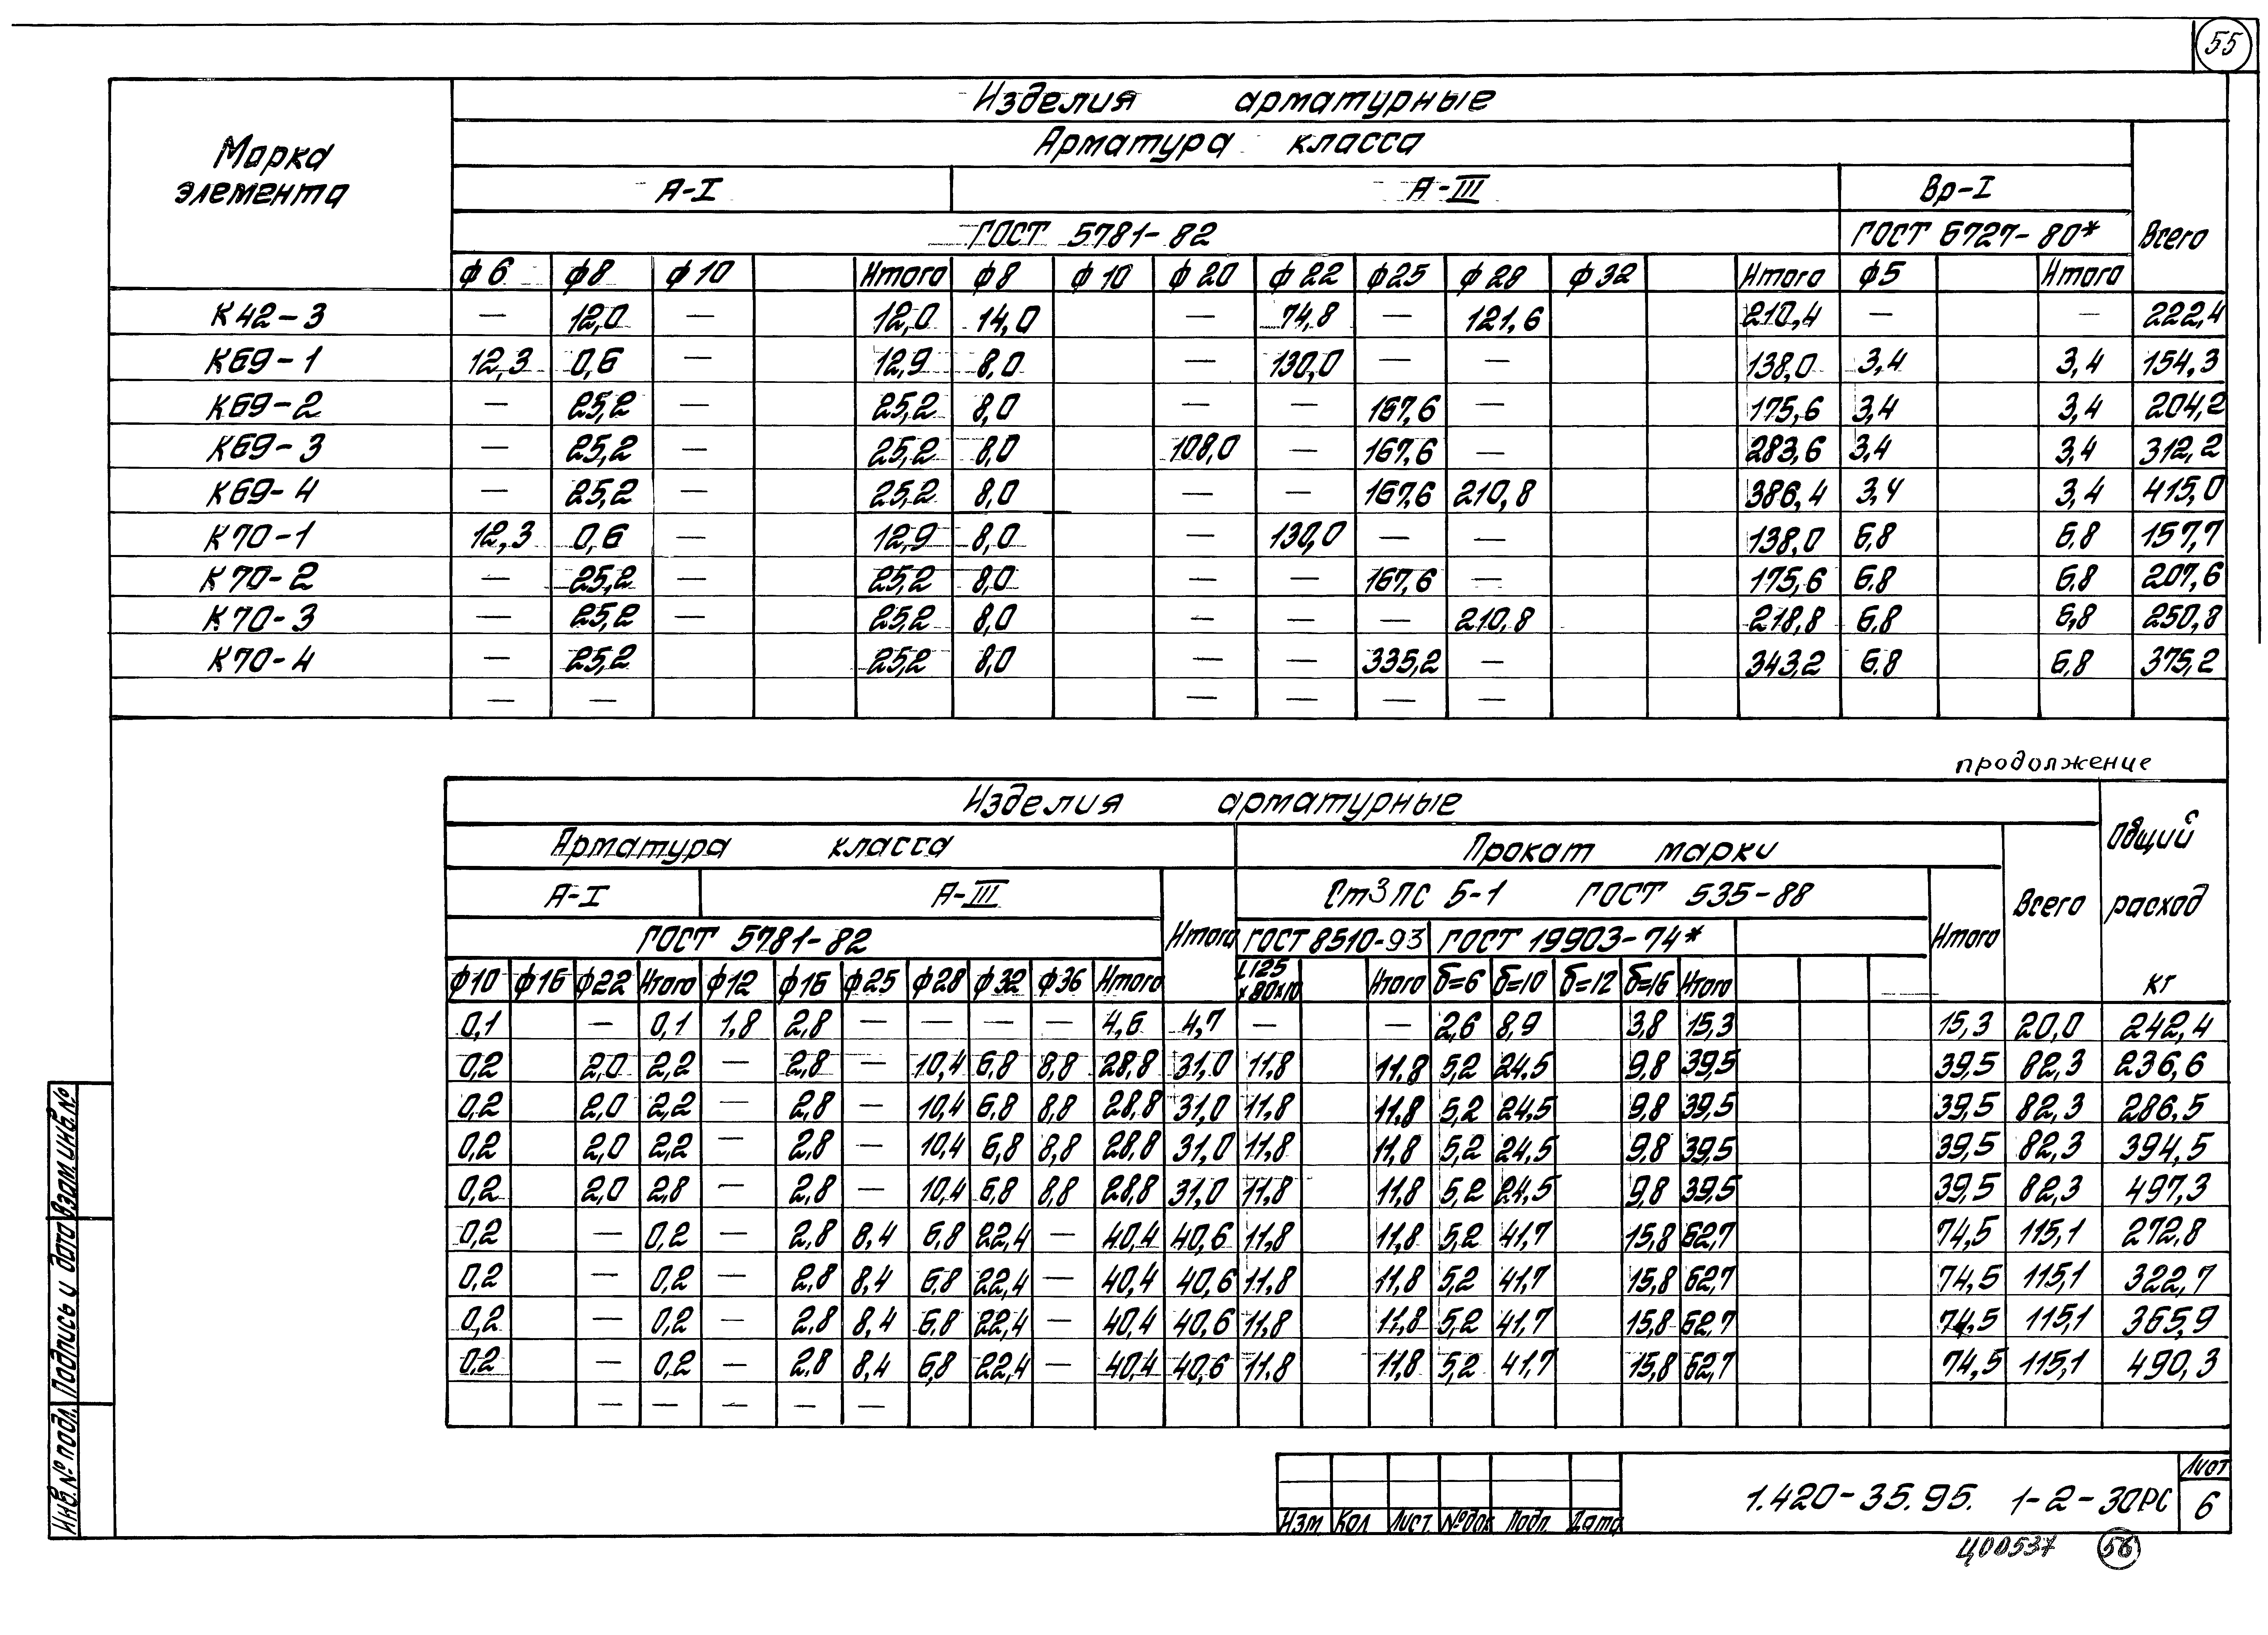 55
Изделия арматурные
Марка элемента
Арматура класса
А-I А-III Вр-I
ГОСТ 5781-82 ГОСТ 6727-80* Всего
ф6 ф8 ф10 Итого ф8 ф10 ф20 ф22 ф25 ф28 ф32 Итого ф5 Итого
К42-3 — 12,0 — 12,0 14,0 — 74,8 — 121,6 210,4 — — 222,4
К69-1 12,3 0,6 — 12,9 8,0 — 130,0 — — 138,0 3,4 3,4 154,3
К69-2 — 25,2 — 25,2 8,0 — — 167,6 — 175,6 3,4 3,4 204,2
К69-3 — 25,2 — 25,2 8,0 108,0 — 167,6 — 283,6 3,4 3,4 312,2
К69-4 — 25,2 — 25,2 8,0 — — 167,6 210,8 386,4 3,4 3,4 415,0
К70-1 12,3 0,6 — 12,9 8,0 — 130,0 — — 138,0 6,8 6,8 157,7
К70-2 — 25,2 — 25,2 8,0 — — 167,6 — 175,6 6,8 6,8 207,6
К70-3 — 25,2 — 25,2 8,0 — — — 210,8 218,8 6,8 6,8 250,8
К70-4 — 25,2 25,2 8,0 — — 335,2 — 343,2 6,8 6,8 375,2
— — — — — —
продолжение
Изделия арматурные
Арматура класса Прокат марки Общий
А-I А-III Ст3ПС Б-1 ГОСТ 535-88 Всего расход
ГОСТ 5781-82 Итого ГОСТ 8510-93 ГОСТ 19903-74* Итого
ф10 ф16 ф22 Итого ф12 ф16 ф25 ф28 ф32 ф36 Итого L125 х80х10 Итого б=6 б=10 б=12 б=16 Итого кг
0,1 — 0,1 1,8 2,8 — — — — 4,6 4,7 — — 2,6 8,9 3,8 15,3 15,3 20,0 242,4
0,2 2,0 2,2 — 2,8 — 10,4 6,8 8,8 28,8 31,0 11,8 11,8 5,2 24,5 9,8 39,5 39,5 82,3 236,6
0,2 2,0 2,2 — 2,8 — 10,4 6,8 8,8 28,8 31,0 11,8 11,8 5,2 24,5 9,8 39,5 39,5 82,3 286,5
0,2 2,0 2,2 — 2,8 — 10,4 6,8 8,8 28,8 31,0 11,8 11,8 5,2 24,5 9,8 39,5 39,5 82,3 394,5
0,2 2,0 2,8 — 2,8 — 10,4 6,8 8,8 28,8 31,0 11,8 11,8 5,2 24,5 9,8 39,5 39,5 82,3 497,3
0,2 — 0,2 — 2,8 8,4 6,8 22,4 — 40,4 40,6 11,8 11,8 5,2 41,7 15,8 62,7 74,5 115,1 272,8
0,2 — 0,2 — 2,8 8,4 6,8 22,4 — 40,4 40,6 11,8 11,8 5,2 41,7 15,8 62,7 74,5 115,1 322,7
0,2 — 0,2 — 2,8 8,4 6,8 22,4 — 40,4 40,6 11,8 11,8 5,2 41,7 15,8 62,7 74,5 115,1 365,9
0,2 — 0,2 — 2,8 8,4 6,8 22,4 — 40,4 40,6 11,8 11,8 5,2 41,7 15,8 62,7 74,5 115,1 490,3
— — — — —
Взам. инв. №
Подпись и дата
Инв. № подл.
Изм Кол Лист №док Подп. Дата
1.420-35.95. 1-2-30РС
Лист
6
Ц00537 56